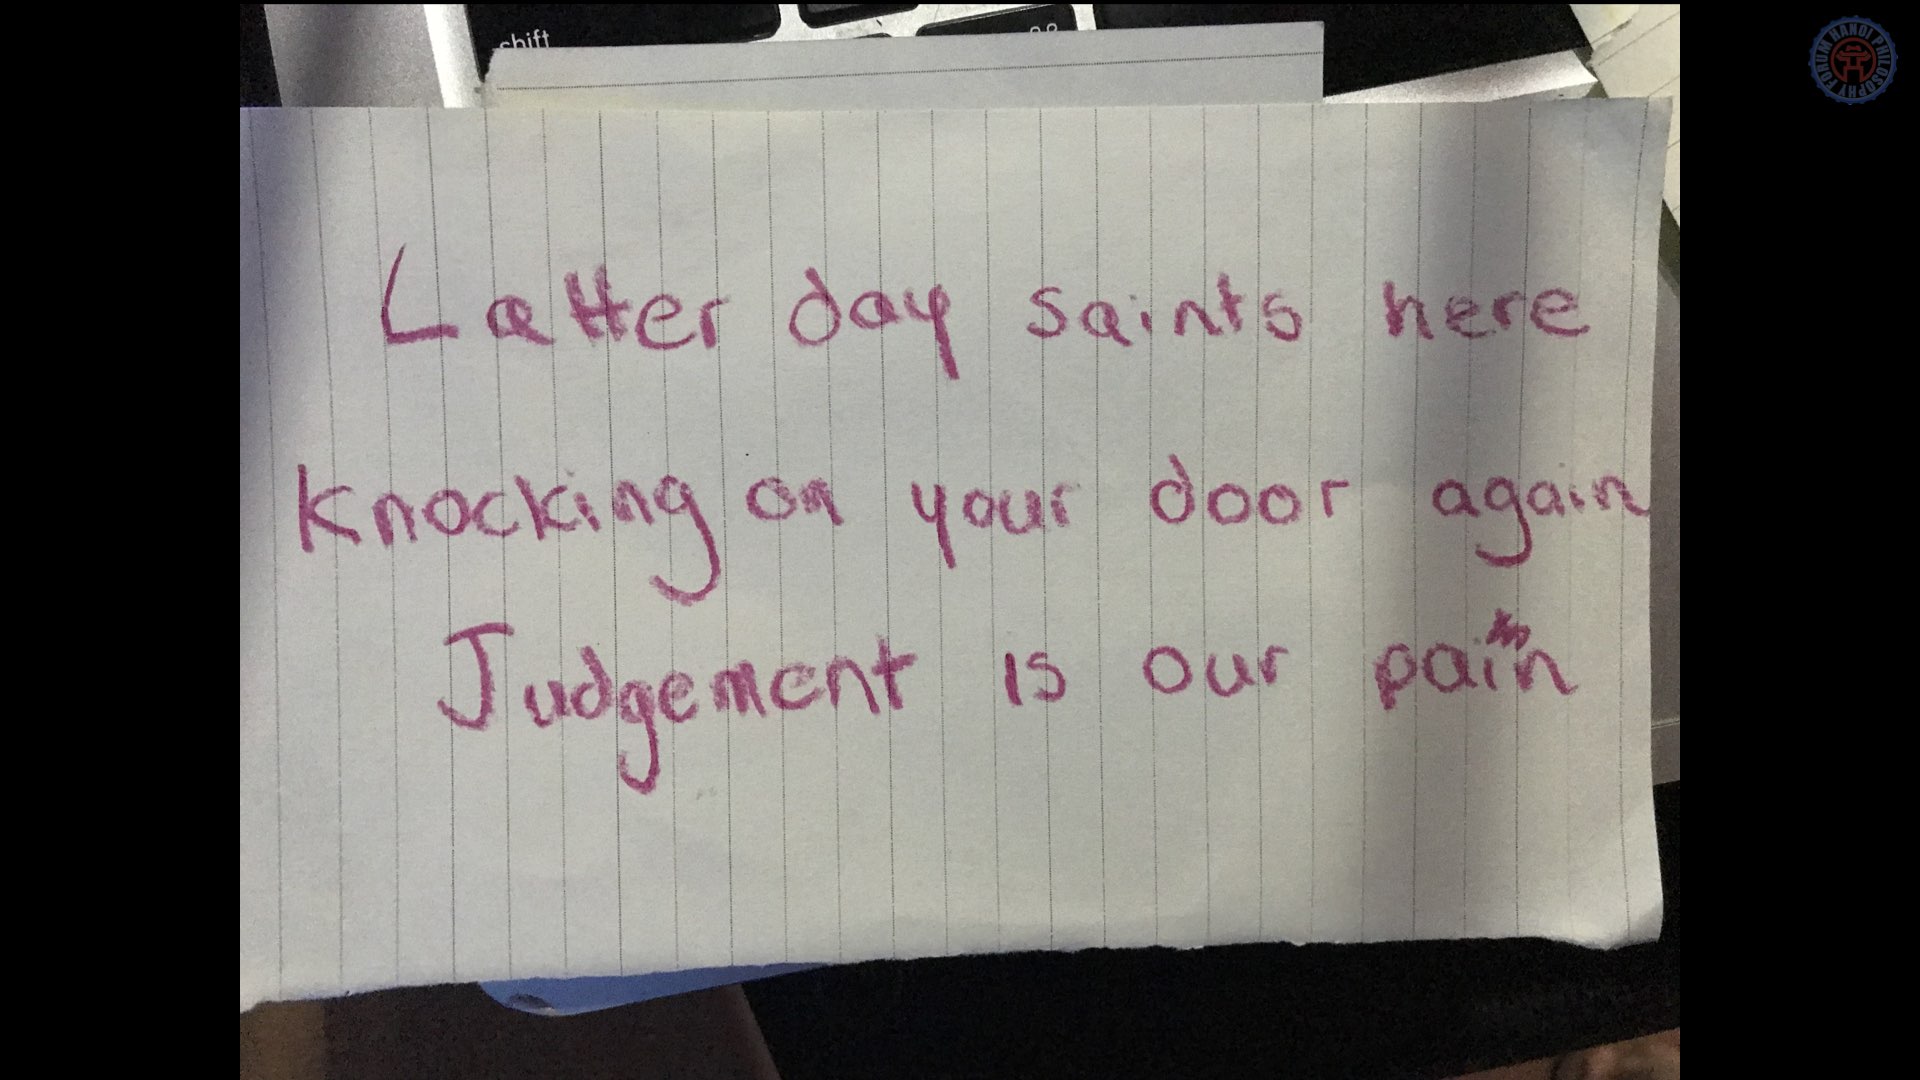 shift
FORUM HANOI PHILOSOPHY
Latter day saints here
knocking on your door again
Judgement is our pain